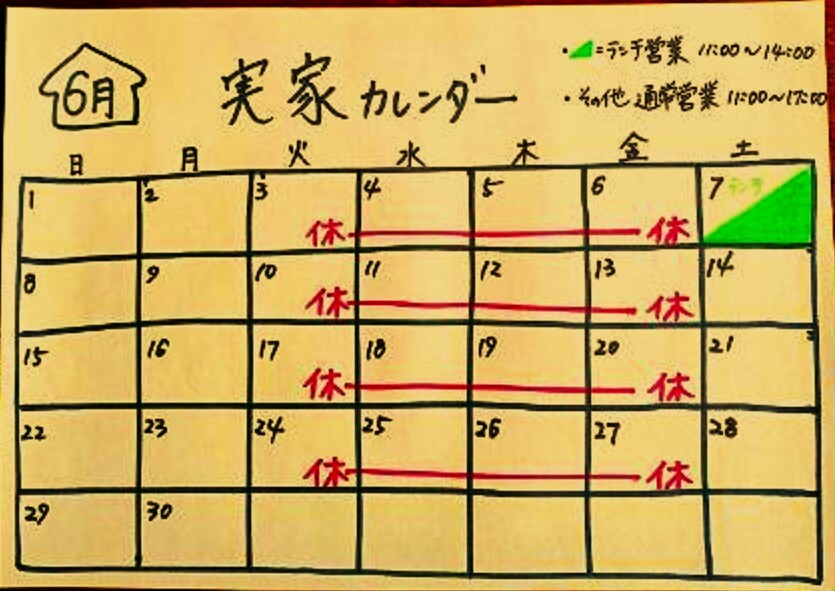 6月
実家カレンダー
・ =ランチ営業 11:00〜14:00
・その他 通常営業 11:00〜17:00
日 月 火 水 木 金 土
1 2 3 4 5 6 7 ランチ
休 休
8 9 10 11 12 13 14
休 休
15 16 17 18 19 20 21
休 休
22 23 24 25 26 27 28
休 休
29 30